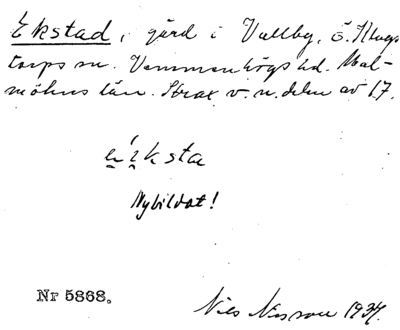 Ekstad, gård i Vallby, Ö. Klags
torps sn. Vemmenhögs hd. Mal-
möhus län. Strax v. n. delen av 17.
Nybildat!
Nr 5868.
Nils Nilsson 1934.